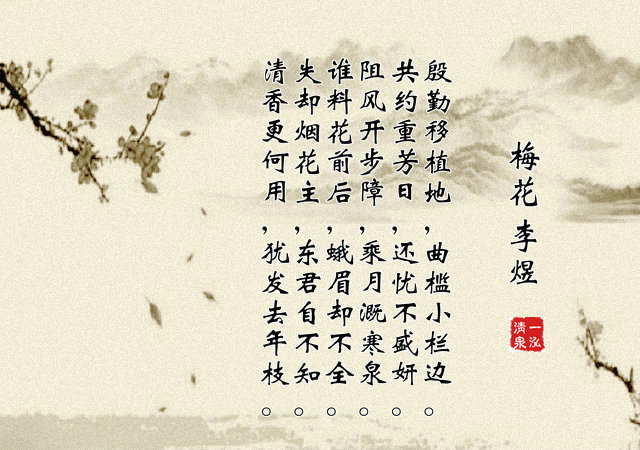 梅花 李煜
一泓清泉
殷勤移植地,曲槛小栏边。
共约重芳日,还忧不盛妍。
阻风开步障,乘月溉寒泉。
谁料花前后,蛾眉却不全。
失却烟花主,东君自不知。
清香更何用,犹发去年枝。